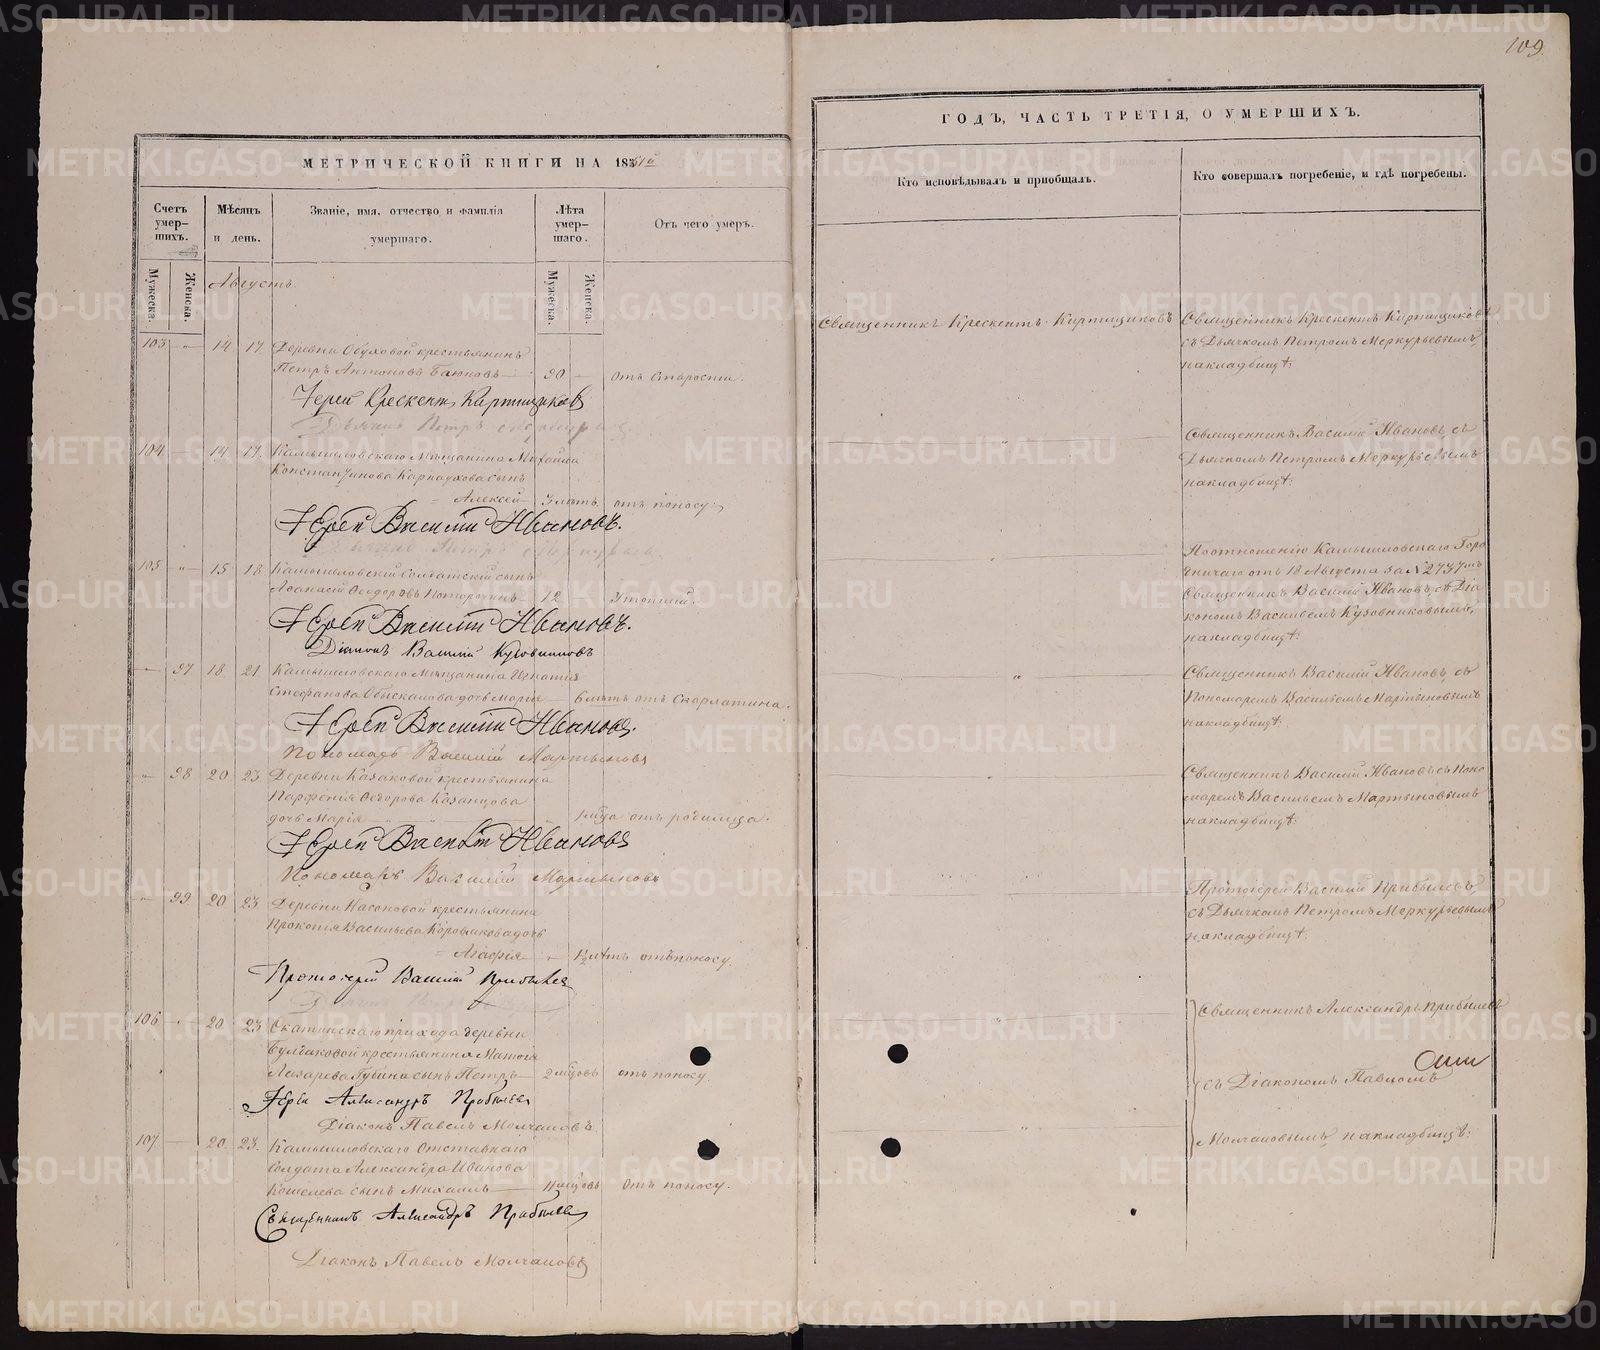 109.
МЕТРИЧЕСКОЙ КНИГИ НА 1851й
ГОДЪ, ЧАСТЬ ТРЕТІЯ, О УМЕРШИХЪ.
Счетъ умер-шихъ.
Мѣсяцъ и день.
Званіе, имя, отчество и фамилія умершаго.
Лѣта умер-шаго.
Отъ чего умеръ.
Кто исповѣдывалъ и пріобщалъ.
Кто совершалъ погребеніе, и гдѣ погребены.
Мужеска.
Женска.
Мужеска.
Женска.
Августъ.
103 14 17 Деревни Обуховой крестьянинъ
Петръ Антоновъ Баюновъ 90 отъ Старости.
Іерей Крескентъ
Дьячекъ Петръ
Священникъ Крескентъ
Священникъ Крескентъ
съ Дьячкомъ Петромъ Меркурьевымъ,
накладбищѣ.
104 14 17 Камышловскаго Мѣщанина Михаила
Константинова Карнаухова сынъ
Алексей 3 лѣтъ отъ поносу.
Іерей Василій Ивановъ.
Дьячекъ Петръ
Священникъ Василій Ивановъ, съ
Дьячкомъ Петромъ Меркурьевымъ
накладбищѣ.
105 15 18 Камышловскій Солдатскій сынъ
Афанасій Феодоровъ 12 Утопшій.
Іерей Василій Ивановъ.
Діаконъ Василій Кузовниковъ
Поотношенію Камышловскаго Горо
дничаго отъ 18 Августа за № 2737мъ
Священникъ Василій Ивановъ, съ Діа
кономъ Васильемъ Кузовниковымъ,
накладбищѣ.
97 18 21 Камышловскаго Мѣщанина Игнатія
Стефанова дочь Марія 6 лѣтъ отъ Скарлатина.
Іерей Василій Ивановъ.
Пономарь Василій Мартыновъ
Священникъ Василій Ивановъ, съ
Пономаремъ Васильемъ Мартыновымъ
накладбищѣ.
98 20 23 Деревни Казаковой крестьянина
Парфенія Федорова Казанцова
дочь Марія отъ родимца.
Іерей Василій Ивановъ
Пономарь Василій Мартыновъ
Священникъ Василій Ивановъ съ Поно
маремъ Васильемъ Мартыновымъ
накладбищѣ.
99 20 23 Деревни Насоновой крестьянина
Прокопія Васильева дочь
Агафія 1½ лѣтъ отъ поносу.
Протоіерей Василій Прибылевъ
Протоіерей Василій Прибылевъ,
съ Дьячкомъ Петромъ Меркурьевымъ
накладбищѣ.
106 20 23 Скатинскаго прихода деревни
крестьянина
Лазарева Губина сынъ Петръ 2 мѣсяцовъ отъ поносу.
Іерей Александръ Прибылевъ
Діаконъ Павелъ Молчановъ.
Священникъ Александръ Прибылевъ
съ Діакономъ Павломъ
107 20 23. Камышловскаго Отставнаго
Солдата Александра Иванова
Кошелева сынъ Михаилъ отъ поносу.
Священникъ Александръ Прибылевъ
Діаконъ Павелъ Молчановъ
Молчановымъ накладбищѣ.
METRIKI.GASO-URAL.RU